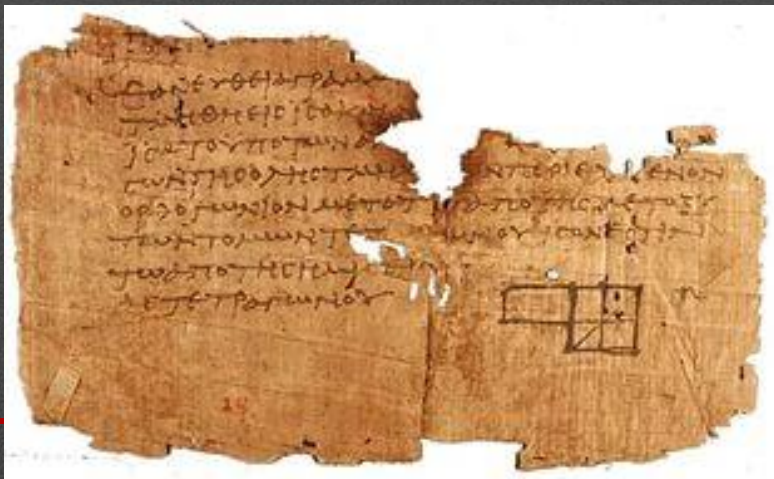 ΕΑΝ ΕΥΘΕΙΑ ΓΡΑΜ
ΤΜΗΘΗ ΕΙϹ ΙϹΑ Κ
ΙϹΑ ΤΟ ΥΠΟ ΤΩΝ ΑΝ
ϹΩΝ ΤΗϹ ΟΛΗϹ ΤΜΗ ΩΝ ΠΕΡΙΕΧ ΜΕΝΟΝ
ΟΡΘΟΓΩΝΙΟΝ ΜΕΤΑ ΤΟΥ ΑΠΟ ΤΗϹ ΜΕΤΑΞΥ
ΤΩΝ ΤΟΜΩΝ ΤΕΤ ΩΝΟΥ ΙϹΟΝ ΕϹΤΙΝ
ΤΩ ΑΠΟ ΤΗϹ ΗΜΙ
ΑϹ ΤΕΤΡΑΓΩΝΟΥ